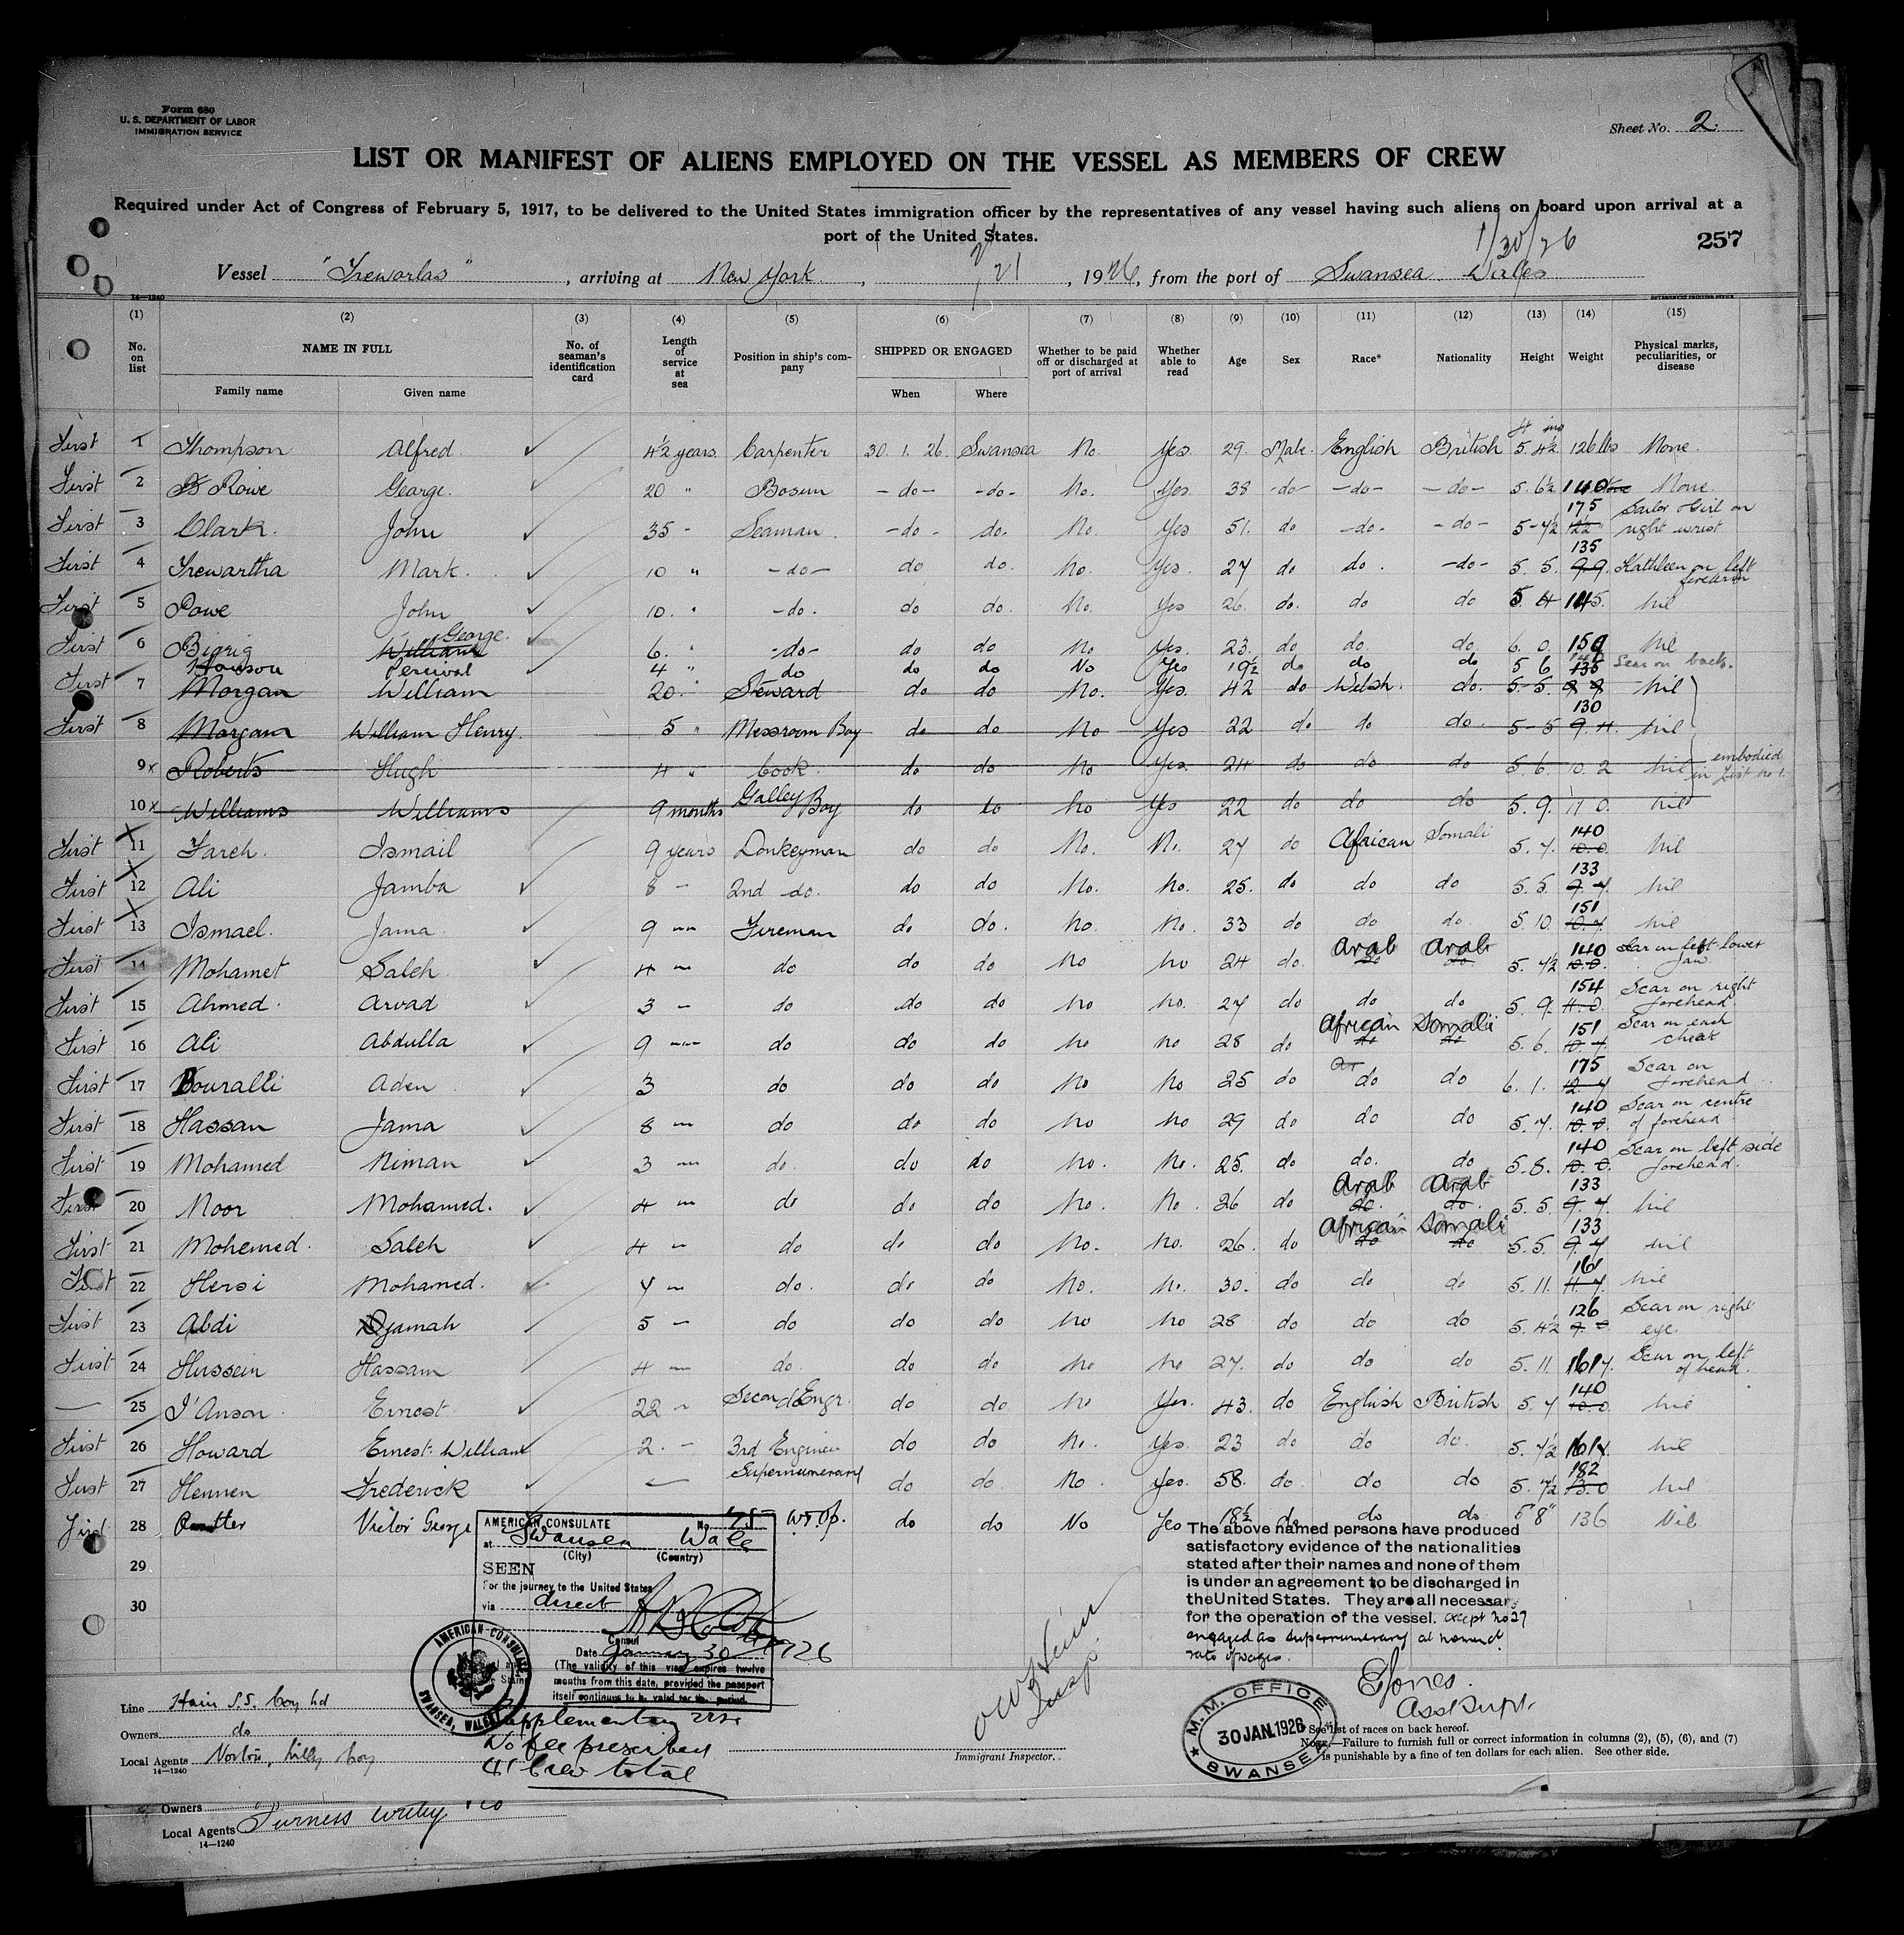 Form 680
U. S. DEPARTMENT OF LABOR
IMMIGRATION SERVICE
Sheet No. 2.
LIST OR MANIFEST OF ALIENS EMPLOYED ON THE VESSEL AS MEMBERS OF CREW
Required under Act of Congress of February 5, 1917, to be delivered to the United States immigration officer by the representatives of any vessel having such aliens on board upon arrival at a
port of the United States.
1/30/26
257
Vessel "Trewarlas", arriving at New York, 2/21, 1926, from the port of Swansea Wales
14—1240
GOVERNMENT PRINTING OFFICE
(1) (2) (3) (4) (5) (6) (7) (8) (9) (10) (11) (12) (13) (14) (15)
No. on list NAME IN FULL No. of seaman's identification card Length of service at sea Position in ship's company SHIPPED OR ENGAGED Whether to be paid off or discharged at port of arrival Whether able to read Age Sex Race* Nationality Height Weight Physical marks, peculiarities, or disease
Family name Given name When Where
First 1 Thompson Alfred 4½ years Carpenter 30. 1. 26. Swansea No. Yes. 29. Male English British 5. 4½ 126 lbs None.
First 2 Rowe George. 20 " Bosun -do- -do- No. Yes. 38 -do- -do- -do- 5. 6½ 140 None.
First 3 Clark. John 35 - Seaman -do- do. No. Yes 51. do -do- -do- 5-4½ 175 Sailor Girl on right wrist
First 4 Trewartha Mark. 10 " -do- do do. No. Yes. 27 do do. -do- 5. 5. 135 9 9. Kathleen on left forearm
First 5 Rowe John 10. " -do. do do. No. Yes 26. do. do do 5. 4 145. Nil
First 6 William George. 6. " -do- do do No Yes. 23. do do. do. 6. 0. 150 Nil
Percival 4 " do do do No Yes 19½ do do do 5 6 135 Scar on back.
First 7 Morgan William 20. " Steward do do No. Yes. 42 do Welsh. do. 5-5. 9 9 Nil
First 8 Morgan William Henry. 5 " Messroom Boy do do No Yes 22 do do do. 5-5 130 9. 4. Nil
9x Roberts Hugh 4 " Cook. do do No Yes. 24 do do do 5. 6. 10. 2 Nil embodied in List No 1.
10x Williams Williams 9 months Galley Boy do do No Yes 22 do do do 5. 9. 11 0. Nil
First 11 Fareh. Ismail 9 years Donkeyman do do No. No. 27 do African Somali 5. 7. 140 10. 0. Nil
First 12 Ali Jamba 8 - 2nd do. do do No. No. 25. do do do 5. 5. 133 9. 7. Nil
First 13 Ismael. Jama 9 " Fireman do do. No. No. 33 do do do. 5. 10. 151 10. 7 Nil
First 14 Mohamet Saleh. 4 " do do do No No 24 do. Arab Arab 5. 7½ 140 10. 0. Scar on left lower Jaw
First 15 Ahmed. Arvad 3 - do do do No No. 27 do do do 5 9. 154 11. 0 Scar on right forehead.
First 16 Ali Abdulla 9 " do do do No No 28 do African Somali 5. 6. 151 10. 7 Scar on each cheek
First 17 Bouralli Aden 3 do do do No No 25 do do do 6. 1. 175 12. 7 Scar on forehead
First 18 Hassan Jama 8 " do do do No No 29 do do do 5. 7. 140 10. 0. Scar on centre of forehead
First 19 Mohamed Niman 3 " do. do do No. No. 25. do do. do 5. 8. 140 10. 0. Scar on left side forehead.
First 20 Noor Mohamed. 4 " do do do No. No. 26 do Arab Arab 5. 5. 133 9. 7 Nil
First 21 Mohemed. Saleh 4 " do do do No. No. 26. do African Somali 5. 5. 133 9. 7 Nil
First 22 Hersi Mohamed. 7 " do. do do No. No. 30. do do do 5. 11. 161 11. 7. Nil
First 23 Abdi Djamah 5 - do do do No No 28 do do do 5. 4½ 126 9. 0 Scar on right eye.
First 24 Hussein Hassam 4 " do. do do No No 27. do do do 5. 11. 161 Scar on left of head.
25 I'Anson. Ernest. 22 " Second Engr. do do No Yes. 43. do English British 5. 7 140 10. 0 Nil
First 26 Howard Ernest William 2. - 3rd Engineer do do No. Yes. 23 do do do. 5. 7½ 161 Nil
First 27 Hennen Frederick Supernumerary do do. No. Yes. 58. do. do do 5. 7½ 182 13. 0 Nil
First 28 Victor George W.T. Op. do do No Yes 18½ do do do. 5' 8" 136 Nil
29
30
AMERICAN CONSULATE No. 25
at Swansea Wales
(City) (Country)
SEEN
For the journey to the United States
via direct
Consul
Date January 30 1926
(The validity of this visa expires twelve
months from this date, provided the passport
itself continues to be valid for the period.
AMERICAN CONSULATE SWANSEA, WALES
Supplementary visa
No fee prescribed
41 Crew total
The above named persons have produced
satisfactory evidence of the nationalities
stated after their names and none of them
is under an agreement to be discharged in
the United States. They are all necessary
for the operation of the vessel. except No 27
engaged as supernumerary at nominal
rate of wages.
Jones.
Asst Supt.
M. M. OFFICE
30 JAN. 1926
SWANSEA
Insp.
Immigrant Inspector.
* See list of races on back hereof.
NOTE.—Failure to furnish full or correct information in columns (2), (5), (6), and (7)
is punishable by a fine of ten dollars for each alien. See other side.
Line Hain S.S. Coy Ld
Owners do
Local Agents Norton, Lilly Coy
14—1240
Owners
Local Agents Furness Withy & Co
14—1240